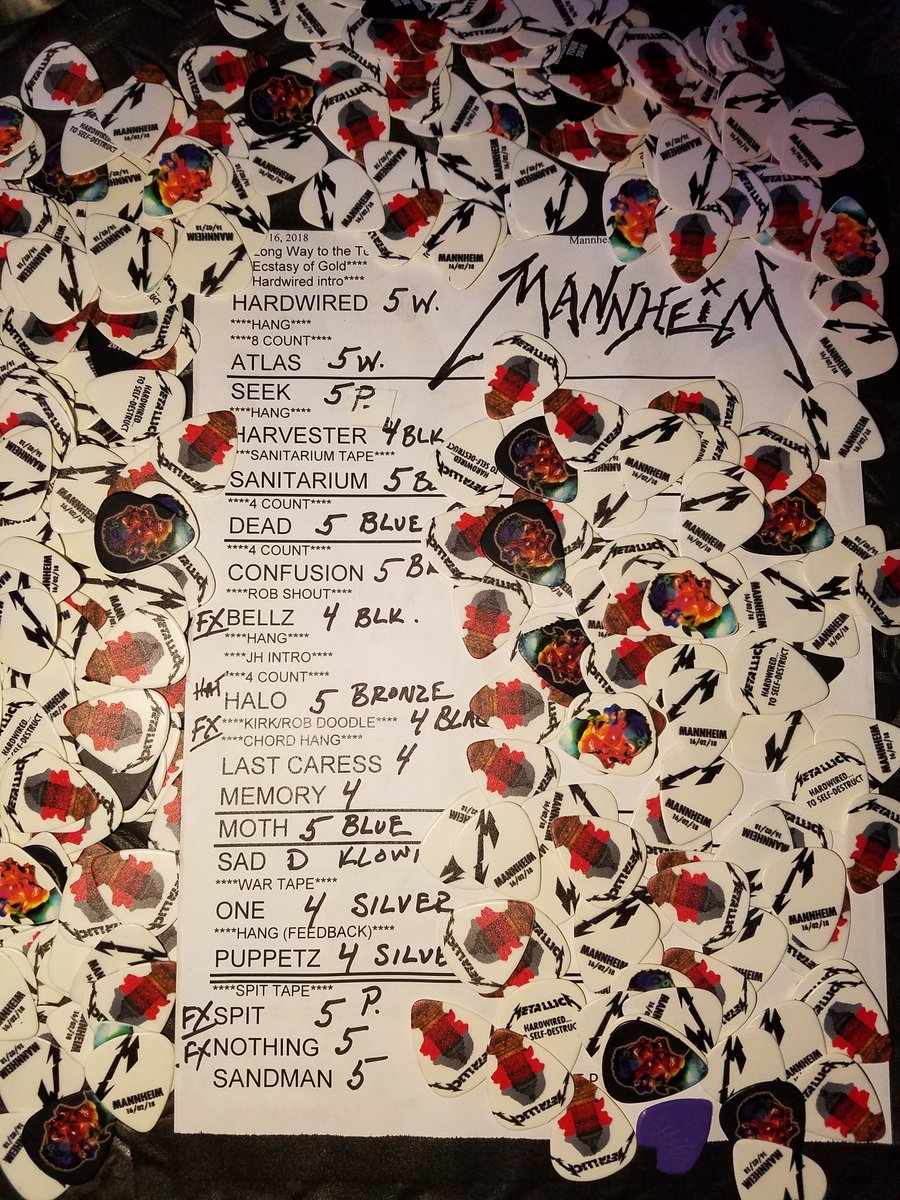 16, 2018
Mannhe
Long Way to the
Ecstasy of Gold****
Hardwired intro****
MANNHEiM
HARDWIRED 5 W.
****HANG****
****8 COUNT****
ATLAS 5 W.
SEEK 5 P.
****HANG****
HARVESTER 4 BLK
***SANITARIUM TAPE****
SANITARIUM 5
****4 COUNT****
DEAD 5 BLUE
****4 COUNT****
CONFUSION 5
****ROB SHOUT****
FX BELLZ 4 BLK.
****HANG****
****JH INTRO****
****4 COUNT****
HAT HALO 5 BRONZE
FX ****KIRK/ROB DOODLE**** 4 BLAC
****CHORD HANG****
LAST CARESS 4
MEMORY 4
MOTH 5 BLUE
SAD D KLOW
****WAR TAPE****
ONE 4 SILVER
****HANG (FEEDBACK)****
PUPPETZ 4 SILVE
****SPIT TAPE****
FX SPIT 5 P.
FX NOTHING 5
SANDMAN 5
METALLICA
HARDWIRED...
TO SELF-DESTRUCT
MANNHEIM
16/02/18